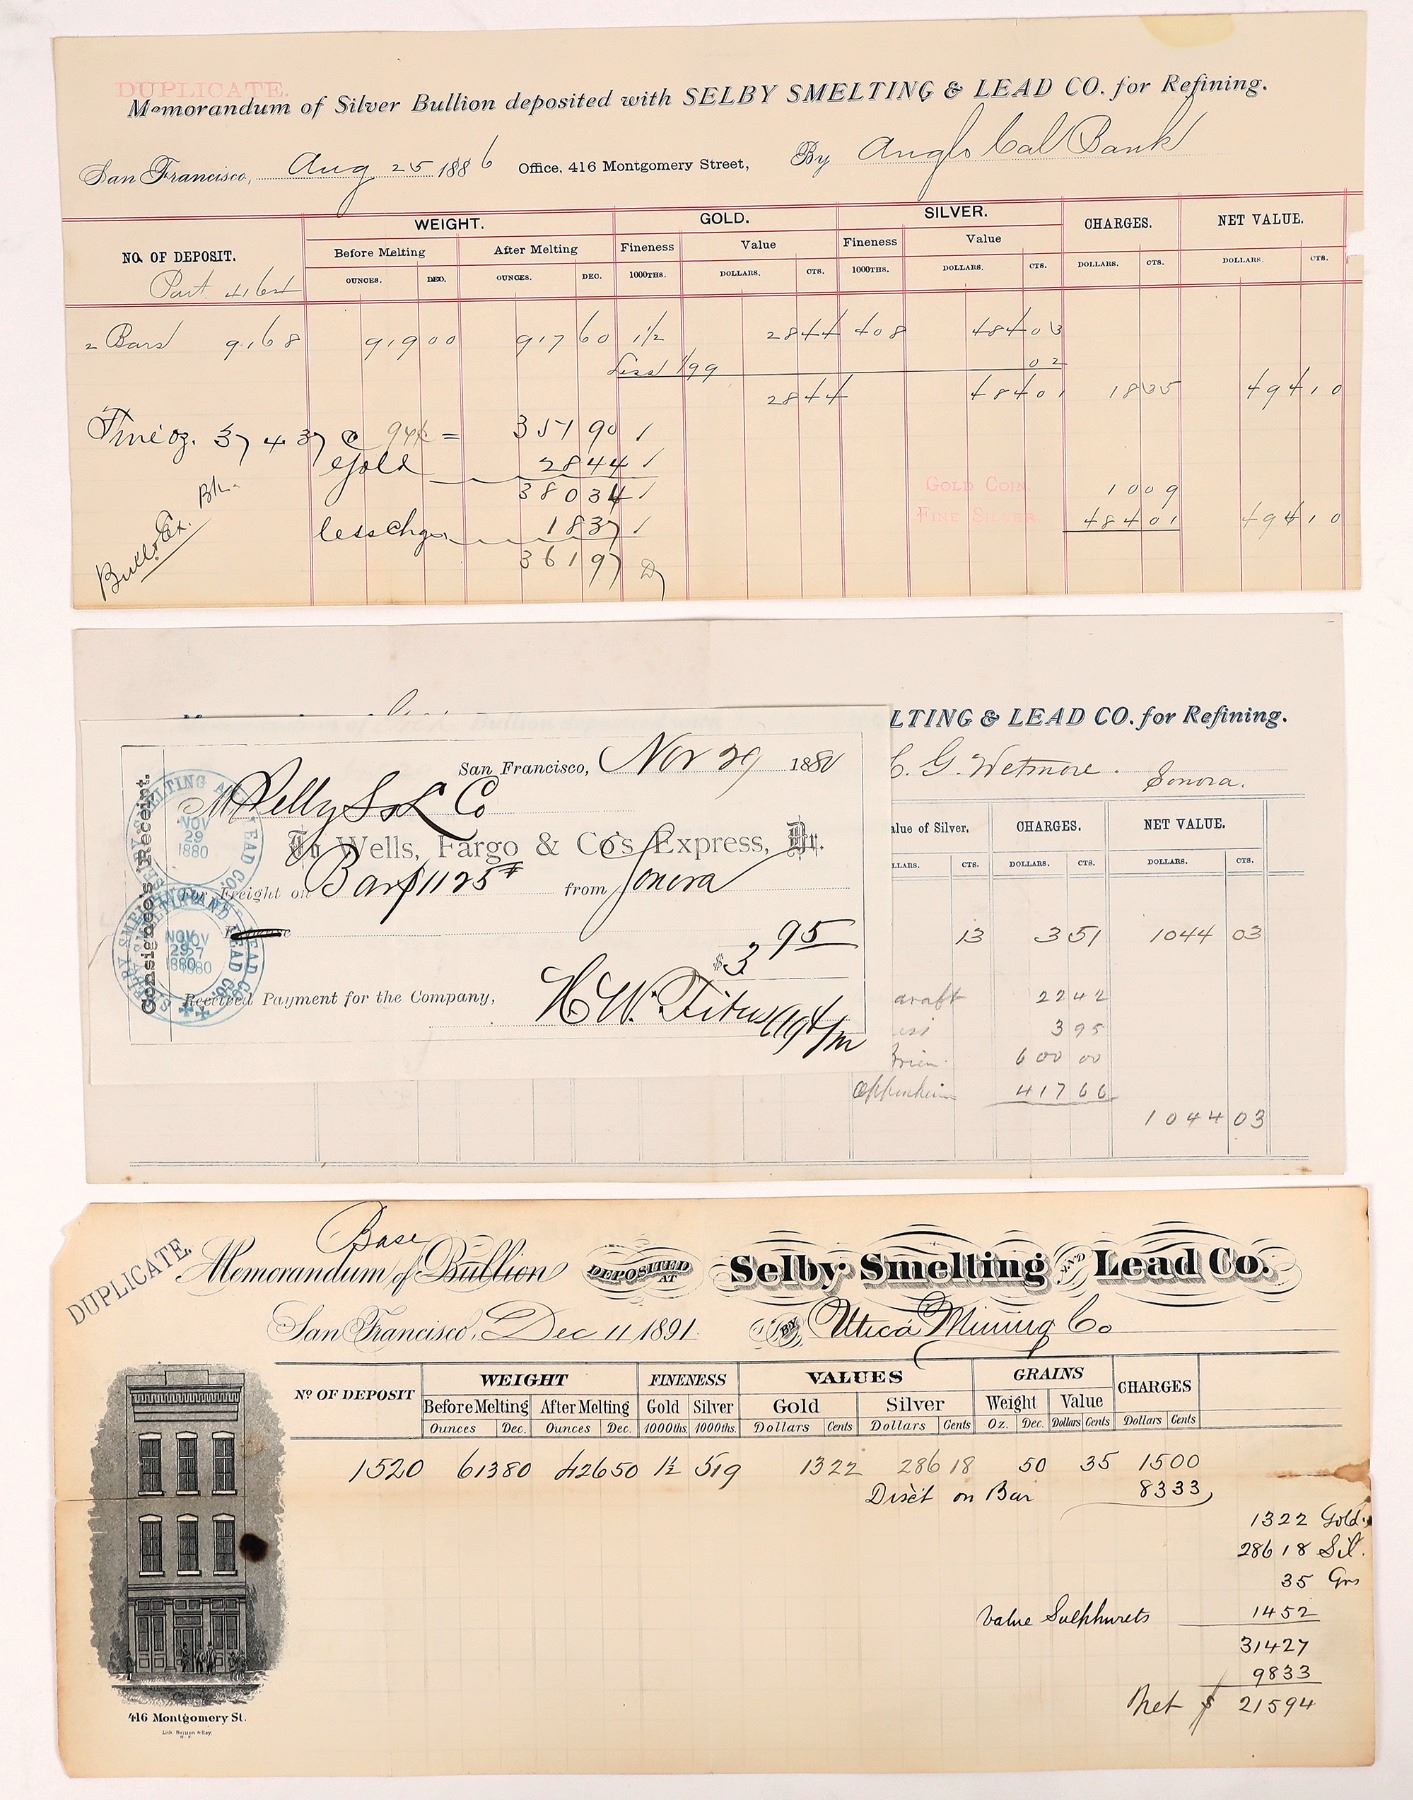 DUPLICATE.
Memorandum of Silver Bullion deposited with SELBY SMELTING & LEAD CO. for Refining.
San Francisco, Aug 25 1886 Office, 416 Montgomery Street, By Anglo Cal Bank
NO. OF DEPOSIT. WEIGHT. GOLD. SILVER. CHARGES. NET VALUE.
Before Melting After Melting Fineness Value Fineness Value
OUNCES. DEC. OUNCES. DEC. 1000THS. DOLLARS. CTS. 1000THS. DOLLARS. CTS. DOLLARS. CTS. DOLLARS. CTS.
Part 4164
2 Bars 9168 919 00 917 60 1½ 28 44 408 484 03
Less 1/99 02
28 44 484 01 18 35 494 10
Fine oz. 374 37 @ 94¢ = 351 90
Gold 28 44
380 34
less Chgs 18 37
361 97
Gold Coin 10 09
Fine Silver 484 01 494 10
Bull & Ex. Bk.
LTING & LEAD CO. for Refining.
C. G. Wetmore. Sonora.
alue of Silver. CHARGES. NET VALUE.
LLARS. CTS. DOLLARS. CTS. DOLLARS. CTS.
13 3 51 1044 03
draft 22 42
3 95
600 00
Oppenheim 417 66
1044 03
Consignee's Receipt.
San Francisco, Nov 29 1880
M Selby S & L Co
To Wells, Fargo & Co's Express, Dr.
For Freight on Bar $1125 from Sonora
$3 95
Received Payment for the Company,
H. W. Titus Agt
SELBY SMELTING AND LEAD CO.
NOV 29 1880
SELBY SMELTING AND LEAD CO.
NOV 29 1880
DUPLICATE.
Base
Memorandum of Bullion DEPOSITED AT Selby Smelting AND Lead Co.
San Francisco, Dec 11 1891. BY Utica Mining Co
No OF DEPOSIT WEIGHT FINENESS VALUES GRAINS CHARGES
Before Melting After Melting Gold Silver Gold Silver Weight Value
Ounces Dec. Ounces Dec. 1000ths. 1000ths. Dollars Cents Dollars Cents Oz. Dec. Dollars Cents Dollars Cents
1520 613 80 426 50 1½ 519 13 22 286 18 50 35 15 00
Disc't on Bar 83 33
13 22 Gold.
286 18 Sil.
35 Grs
Value Sulphurets 14 52
314 27
98 33
Net $ 215 94
416 Montgomery St.